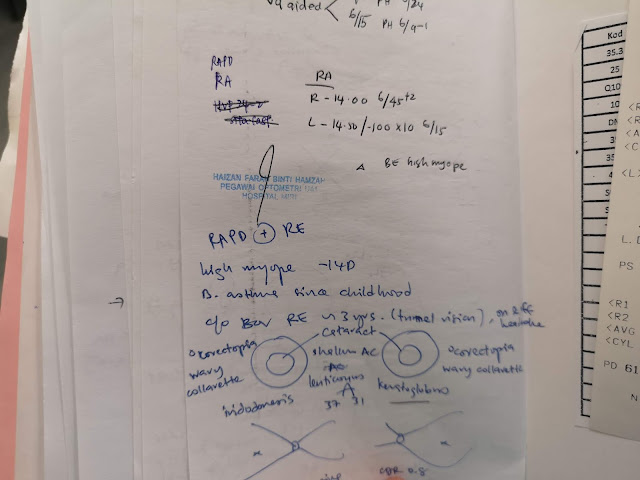 Vq aided < PH 6/24
6/15 PH 6/9-1
RAPD
RA
RA
R -14.00 6/45+2
L -14.50/-100 x10 6/15
Δ BE high myope
HAIZAN FARAH BINTI HAMZAH
PEGAWAI OPTOMETRI U41
HOSPITAL
RAPD + RE
high myope -14D
B. asthma since childhood
c/o Bov RE ~ 3 yrs. (tunnel vision), on & off headache
cataract
corectopia
wavy
collarette
shallow AC
lenticonus
37 31
corectopia
wavy collarette
iridodonesis
keratoglobus
CDR 0.8
Kod
35.3
25
Q10
10
DN
35
<R
<R
<A
<C
<L
L.D
PS
<R1
<R2
<AVG
<CYL
PD 61
N